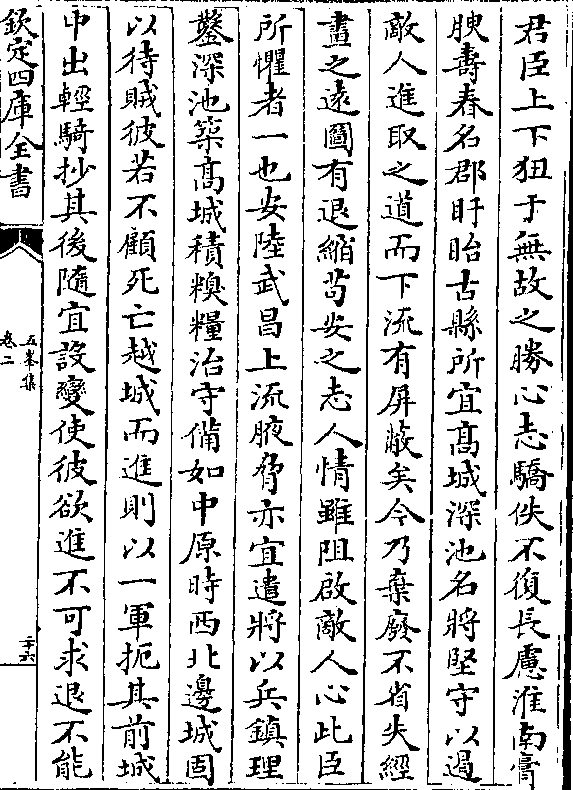 君臣上下狃于無故之勝心志驕佚不復長慮淮南膏
腴壽春名郡盱眙古縣所宜髙城深池名將堅守以遏
敵人進取之道而下流有屏蔽矣今乃棄廢不省失經
畫之逺圖有退縮茍安之志人情雖阻啟敵人心此臣
所懼者一也安陸武昌上流腋脅亦宜遣將以兵鎮理
鑿深池築髙城積糗糧治守備如中原時西北邊城固
以待賊彼若不顧死亡越城而進則以一軍扼其前城
中出輕騎抄其後隨宜設變使彼欲進不可求退不能
欽定四庫全書
五峯集
卷二
二十六